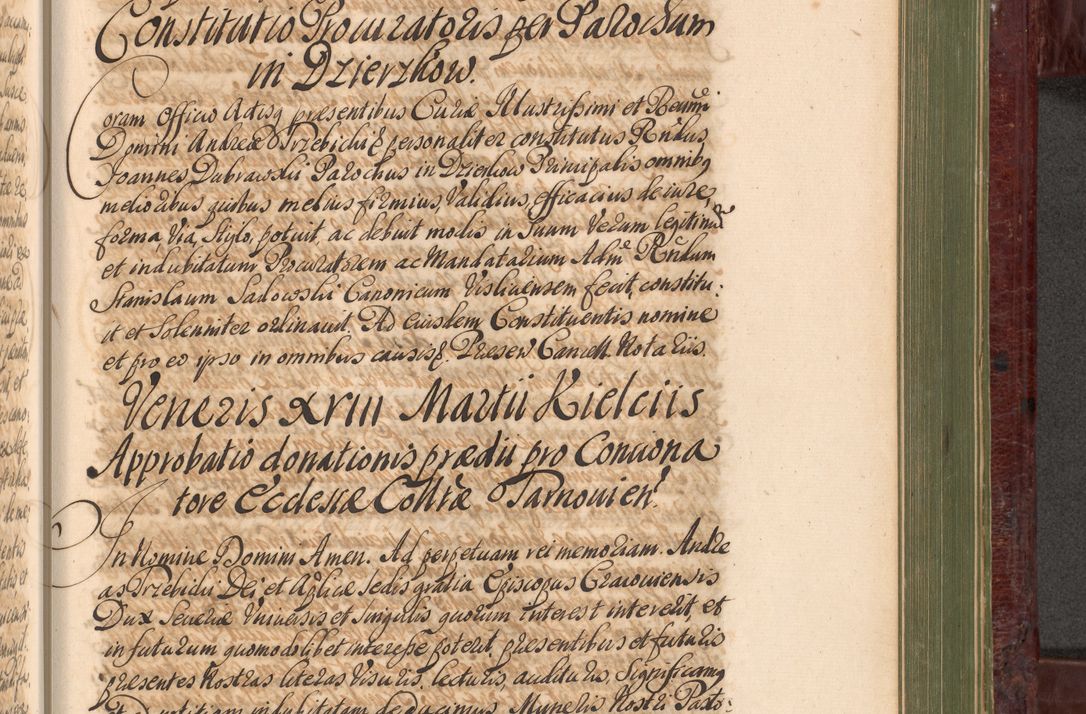 Constitutio Procuratoris per Parochum
in Dzierzkow.
Coram Officio Actisq presentibus Curiæ Illustrissimi et Reumi
Domini Andreæ Trzebicki & personaliter constitutus Rndus
Joannes Dabrawski Parochus in Dzierkow Principalis omnibq
melioribus quibus melius firmius, Validius, efficacius de iure,
forma, Via, Stylo, potuit, ac debuit modis in suum Verum legitimũ
et indubitatum Procuratorem ac Mandatarium Adm Rndum
Stanislaum Sadowski Canonicum Visliciensem fecit, constitu:
it et solenniter ordinauit. Ad eiusdem Constituentis nomine
et pro eo ipso in omnibus causis &. Presen Cancell. Notariis.
Veneris XVIII Martii Kielciis
Approbatio donationis prædii pro Conciona
tore Ecclesiæ Colltæ Tarnouien.
In Nomine Domini Amen. Ad perpetuam rei memoriam. Andre
as Trzebicki Dei et Aplicæ sedis gratia Episcopus Cracouiensis
Dux Seueriæ Vniuersis et singulis quorum interest intererit, et
in futurum quomodolibet interesse poterit presentibus et futuris
presentes Nostras literas Visuris, lecturis, audituris, Significamq
Et
indubitatam deducimus Muneris Nostri Pasto: